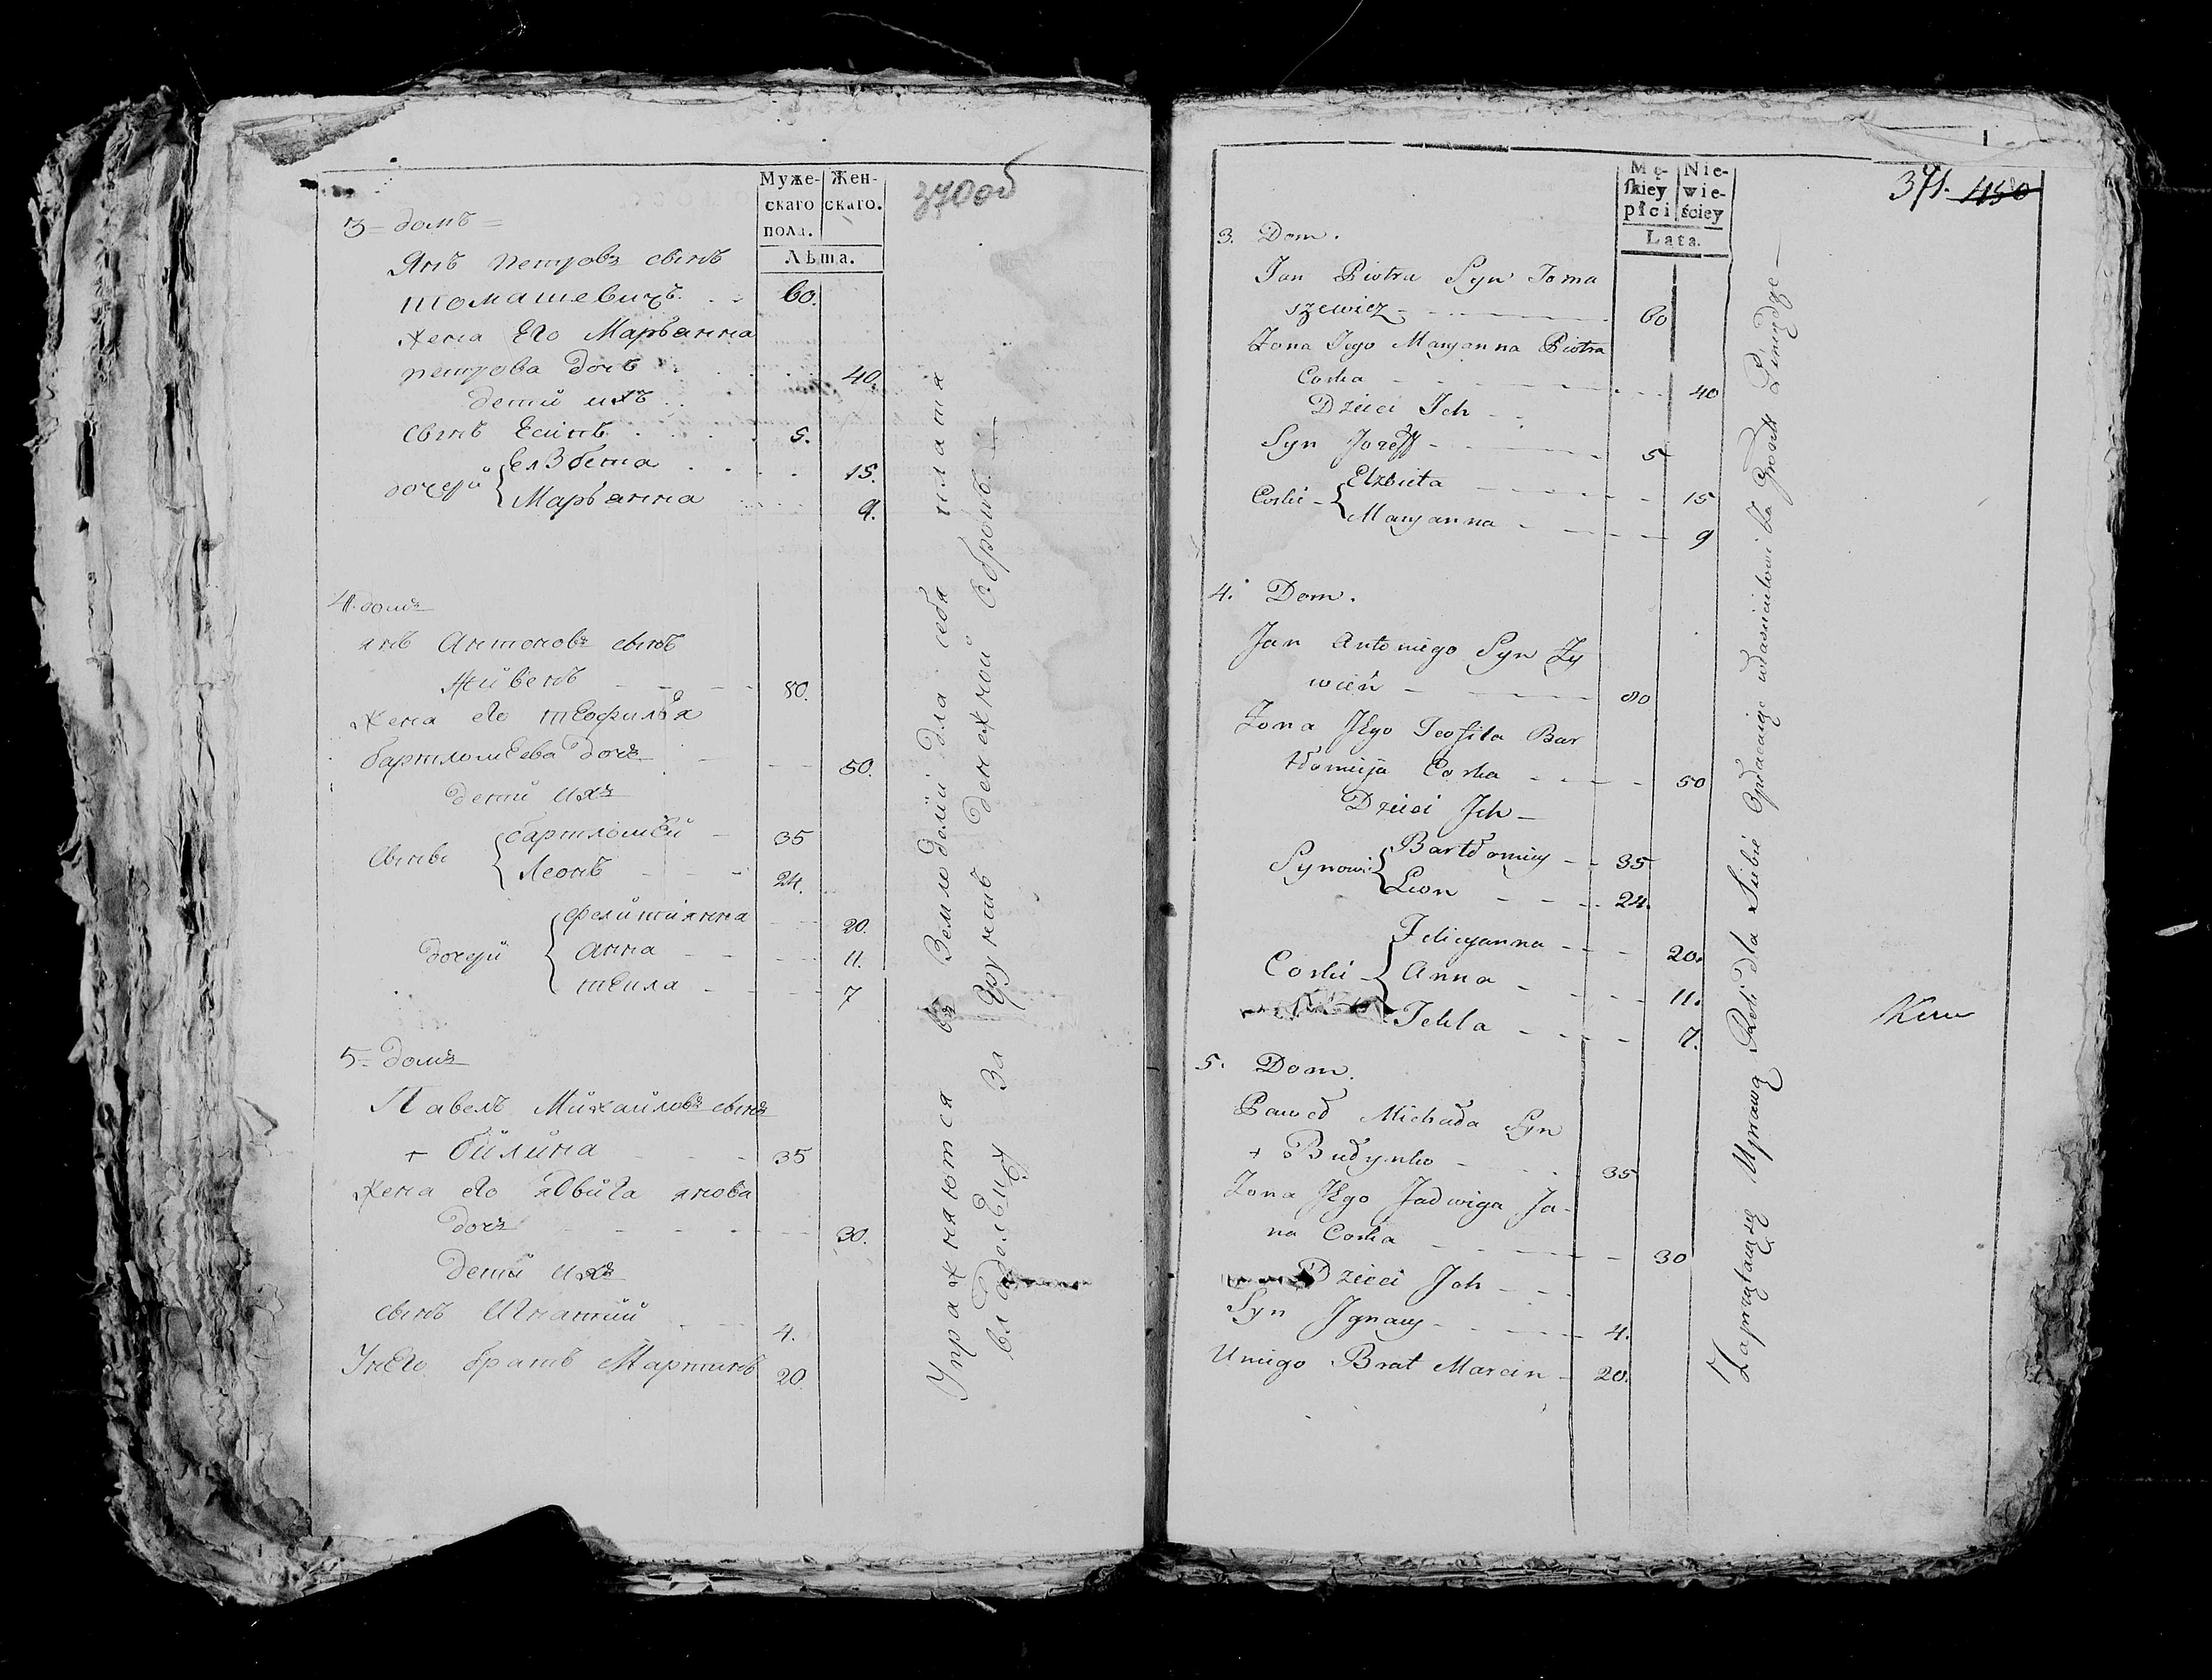 Муже-
скаго
пола.
Жен-
скаго.
Лѣта.
370об
3 = домъ =
Янъ петровъ сынъ
томашевичъ. 60.
жена Его Марьянна
петрова дочь 40.
дети ихъ
сынъ Есипъ 5.
дочери Елзбета 15.
Марьянна 9.
4. домъ
янъ Антоновъ сынъ
Живень 80.
жена его теофилья
бартломеева дочь 50.
дети ихъ
сынове бартломей 35
Леонъ 24.
дочери фелициянна 20.
Анна 11.
текла 7
5 = домъ
Павелъ Михайловъ сынъ
+ билина 35
жена его ядвига янова
дочь 30.
дети ихъ
сынъ Игнатий 4.
У него братъ Мартинъ 20.
Упражняются въ Земледелии для себя платя
владельцу За грунтъ денежной оброкъ. —
Mę-
ſkiey
płci
Nie-
wie-
ściey
Lata.
371. 450
3. Dom.
Jan Piotra Syn Toma
szewicz 60
Zona Jego Maryanna Piotra
Corka 40
Dzieci Ich
Syn Jozeff 5
Corki Elzbieta 15
Maryanna 9
4. Dom.
Jan Antoniego Syn Zy
wień 80
Zona JEgo Teofila Bar
tłomieja Corka 50
Dzieci Ich
Synowi Bartłomiey 35
Leon 24.
Corki Felicyanna 20.
Anna 11.
Tekla 7.
5. Dom.
Paweł Michała Syn
+ Budynko 35
Zona JEgo Jadwiga Ja-
na Corka 30
Dzieci Ich
Syn Ignacy 4.
U niego Brat Marcin 20.
Zaprzątaią się Uprawą Roli dla Siebie Opłacaiąc właścicielowi za Grontt Pieniądze —